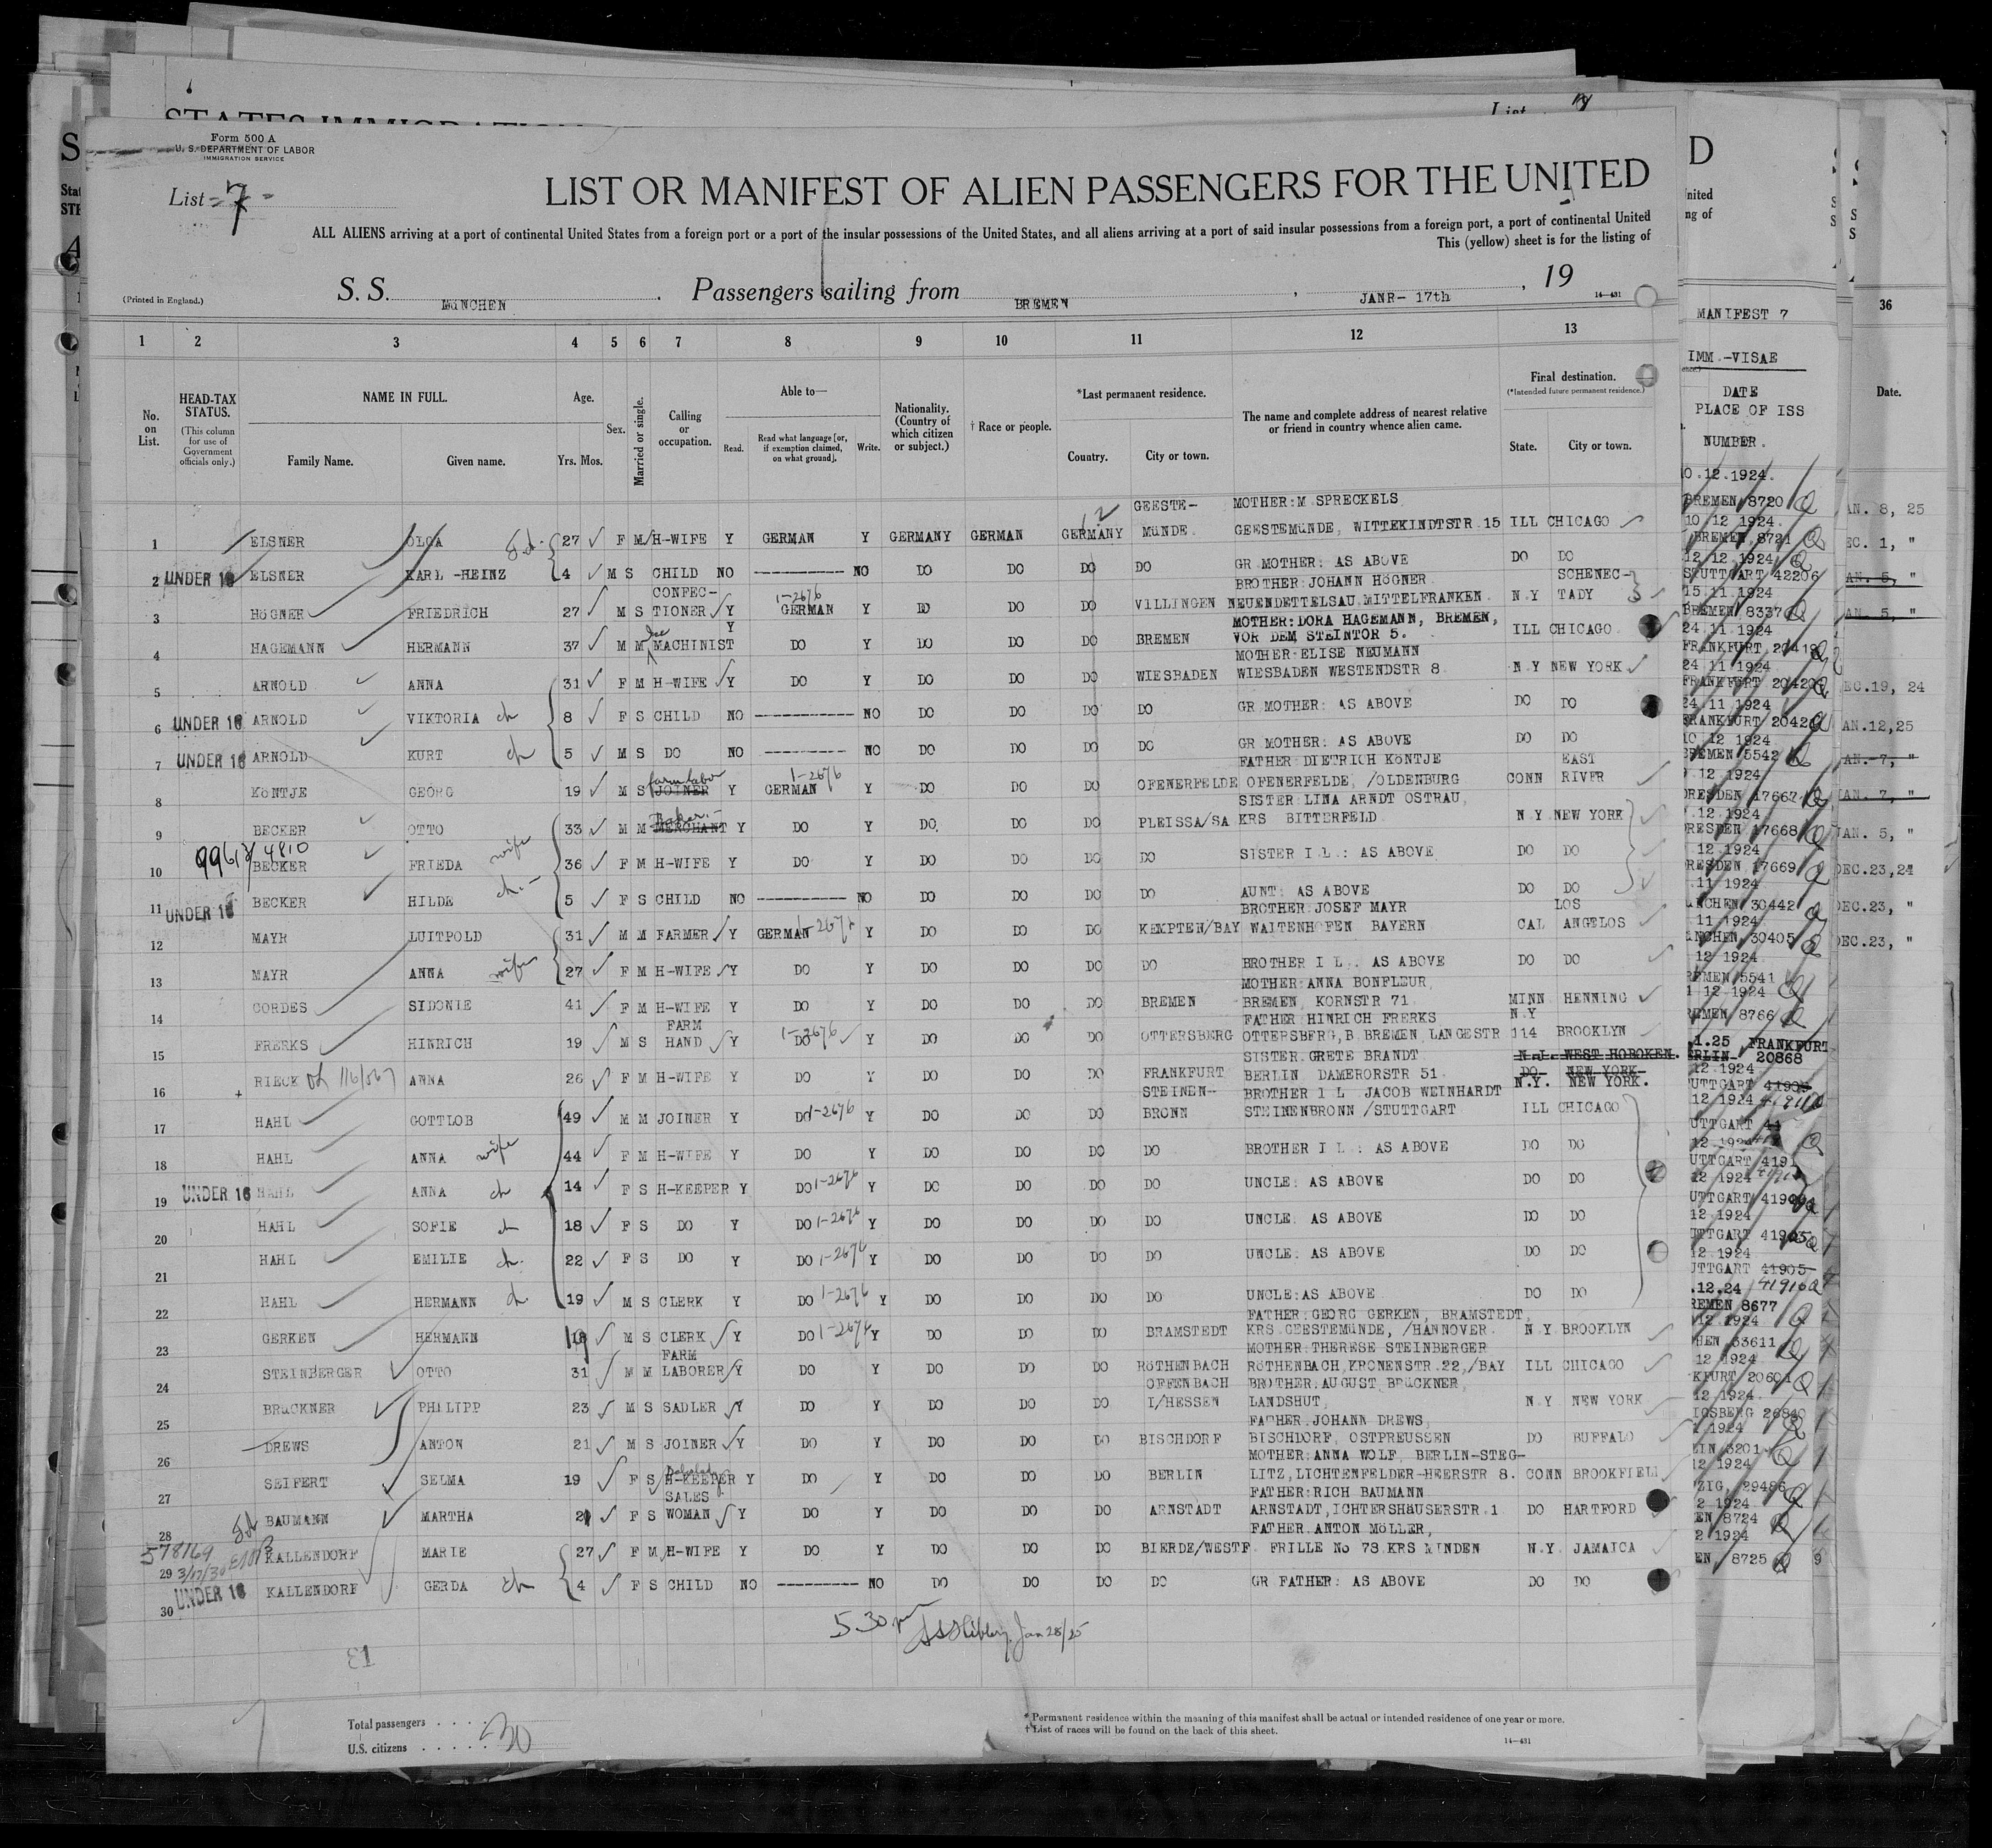 STATES IMMIGRATION
List
Form 500 A
U. S. DEPARTMENT OF LABOR
IMMIGRATION SERVICE
List - 7 -
LIST OR MANIFEST OF ALIEN PASSENGERS FOR THE UNITED
ALL ALIENS arriving at a port of continental United States from a foreign port or a port of the insular possessions of the United States, and all aliens arriving at a port of said insular possessions from a foreign port, a port of continental United
This (yellow) sheet is for the listing of
(Printed in England.) S. S. MüNCHEN . Passengers sailing from BREMEN , JANR- 17th , 19 14-431
1 2 3 4 5 6 7 8 9 10 11 12 13
No. on List.
HEAD-TAX STATUS.
(This column for use of Government officials only.)
NAME IN FULL.
Family Name. Given name.
Age.
Yrs. Mos.
Sex.
Married or single.
Calling or occupation.
Able to—
Read. Read what language [or, if exemption claimed, on what ground]. Write.
Nationality. (Country of which citizen or subject.)
† Race or people.
*Last permanent residence.
Country. City or town.
The name and complete address of nearest relative or friend in country whence alien came.
Final destination.
(*Intended future permanent residence.)
State. City or town.
GEESTE- MOTHER: M SPRECKELS
1 ELSNER OLGA 27 F M H-WIFE Y GERMAN Y GERMANY GERMAN GERMANY MüNDE. GEESTEMüNDE, WITTEKINDTSTR 15 ILL CHICAGO
2 UNDER 16 ELSNER KARL -HEINZ 4 M S CHILD NO ---------- NO DO DO DO DO GR MOTHER: AS ABOVE DO DO
CONFEC- BROTHER: JOHANN HöGNER SCHENEC-
3 HöGNER FRIEDRICH 27 M S TIONER Y 1-2676 GERMAN Y DO DO DO VILLINGEN NEUENDETTELSAU, MITTELFRANKEN N.Y TADY
MOTHER: DORA HAGEMANN, BREMEN,
4 HAGEMANN HERMANN 37 M M MACHINIST Y DO Y DO DO DO BREMEN VOR DEM STEINTOR 5. ILL CHICAGO
MOTHER: ELISE NEUMANN
5 ARNOLD ANNA 31 F M H-WIFE Y DO Y DO DO DO WIESBADEN WIESBADEN WESTENDSTR 8 N.Y NEW YORK
6 UNDER 16 ARNOLD VIKTORIA ch 8 F S CHILD NO ---------- NO DO DO DO DO GR MOTHER: AS ABOVE DO DO
7 UNDER 16 ARNOLD KURT ch 5 M S DO NO ---------- NO DO DO DO DO GR MOTHER: AS ABOVE DO DO
FATHER DIETRICH KöNTJE EAST
8 KöNTJE GEORG 19 M S farm labor JOINER Y 1-2676 GERMAN Y DO DO DO OFENERFELDE OFENERFELDE, /OLDENBURG CONN RIVER
SISTER LINA ARNDT OSTRAU,
9 BECKER OTTO 33 M M Baker MERCHANT Y DO Y DO DO DO PLEISSA/SA KRS BITTERFELD N.Y NEW YORK
10 BECKER FRIEDA wife 36 F M H-WIFE Y DO Y DO DO DO DO SISTER I L.: AS ABOVE DO DO
11 UNDER 16 BECKER HILDE ch. 5 F S CHILD NO ---------- NO DO DO DO DO AUNT: AS ABOVE DO DO
BROTHER JOSEF MAYR LOS
12 MAYR LUITPOLD 31 M M FARMER Y GERMAN 1-2676 Y DO DO DO KEMPTEN/BAY WALTENHOFEN BAYERN CAL ANGELOS
13 MAYR ANNA wife 27 F M H-WIFE Y DO Y DO DO DO DO BROTHER I L.: AS ABOVE DO DO
MOTHER: ANNA BONFLEUR,
14 CORDES SIDONIE 41 F M H-WIFE Y DO Y DO DO DO BREMEN BREMEN, KORNSTR 71 MINN HENNING
FARM FATHER HINRICH FRERKS N.Y
15 FRERKS HINRICH 19 M S HAND Y 1-2676 DO Y DO DO DO OTTERSBERG OTTERSBERG, B. BREMEN, LANGESTR 114 BROOKLYN
SISTER: GRETE BRANDT N.J. WEST HOBOKEN.
16 RIECK ANNA 26 F M H-WIFE Y DO Y DO DO DO FRANKFURT BERLIN DAMERORSTR 51 DO- NEW YORK- N.Y. NEW YORK.
STEINEN- BROTHER I L JACOB WEINHARDT
17 HAHL GOTTLOB 49 M M JOINER Y DO 1-2676 Y DO DO DO BRONN STEINENBRONN /STUTTGART ILL CHICAGO
18 HAHL ANNA wife 44 F M H-WIFE Y DO Y DO DO DO DO BROTHER I L : AS ABOVE DO DO
19 UNDER 16 HAHL ANNA ch 14 F S H-KEEPER Y DO 1-2676 Y DO DO DO DO UNCLE: AS ABOVE DO DO
20 HAHL SOFIE ch 18 F S DO Y DO 1-2676 Y DO DO DO DO UNCLE: AS ABOVE DO DO
21 HAHL EMILIE ch. 22 F S DO Y DO 1-2676 Y DO DO DO DO UNCLE: AS ABOVE DO DO
22 HAHL HERMANN ch 19 M S CLERK Y DO 1-2676 Y DO DO DO DO UNCLE: AS ABOVE DO DO
FATHER: GEORG GERKEN, BRAMSTEDT,
23 GERKEN HERMANN 19 M S CLERK Y DO 1-2676 Y DO DO DO BRAMSTEDT KRS GEESTEMüNDE, /HANNOVER N.Y. BROOKLYN
FARM MOTHER: THERESE STEINBERGER
24 STEINBERGER OTTO 31 M M LABORER Y DO Y DO DO DO RöTHENBACH RöTHENBACH, KRONENSTR.22,/BAY ILL CHICAGO
OFFENBACH BROTHER: AUGUST BRüCKNER,
25 BRüCKNER PHILIPP 23 M S SADLER Y DO Y DO DO DO I/HESSEN LANDSHUT, N.Y NEW YORK
FATHER JOHANN DREWS,
26 DREWS ANTON 21 M S JOINER Y DO Y DO DO DO BISCHDORF BISCHDORF, OSTPREUSSEN DO BUFFALO
MOTHER: ANNA WOLF, BERLIN-STEG-
27 SEIFERT SELMA 19 F S H-KEEPER Y DO Y DO DO DO BERLIN LITZ, LICHTENFELDER-HEERSTR 8. CONN BROOKFIELD
SALES FATHER: RICH BAUMANN
28 BAUMANN MARTHA 21 F S WOMAN Y DO Y DO DO DO ARNSTADT ARNSTADT, ICHTERSHäUSERSTR.1 DO HARTFORD
FATHER ANTON MöLLER,
578169
29 KALLENDORF MARIE 27 F M H-WIFE Y DO Y DO DO DO BIERDE/WESTF FRILLE No 78 KRS MINDEN N.Y. JAMAICA
30 UNDER 16 KALLENDORF GERDA ch 4 F S CHILD NO ---------- NO DO DO DO DO GR FATHER: AS ABOVE DO DO
5.30 pm Jan 28/25
13
Total passengers . . . . 30
U.S. citizens . . . . .
* Permanent residence within the meaning of this manifest shall be actual or intended residence of one year or more.
† List of races will be found on the back of this sheet.
14-431
MANIFEST 7
IMM.-VISAE
DATE
PLACE OF ISS
NUMBER.
10.12.1924.
BREMEN 8720
10 12 1924.
BREMEN, 8721
12 12 1924
STUTTGART 42206
15.11.1924
BREMEN 8337
24 11 1924
FRANKFURT 20419
24 11 1924
FRANKFURT 20420
24 11 1924
FRANKFURT 20421
10 12 1924
BREMEN 5542
12 1924
DRESDEN 17667
12 1924
DRESDEN 17668
12 1924
DRESDEN 17669
11 1924
30442
11 1924
30405
12 1924
BREMEN 5541
12 1924
BREMEN 8766
1.25 FRANKFURT
BERLIN- 20868
36
Date.
AN. 8, 25
EC. 1, "
AN. 5, "
AN. 5, "
EC.19, 24
AN.12,25
AN.-7, "
JAN. 7, "
JAN. 5, "
DEC.23,24
DEC.23, "
DEC.23, "